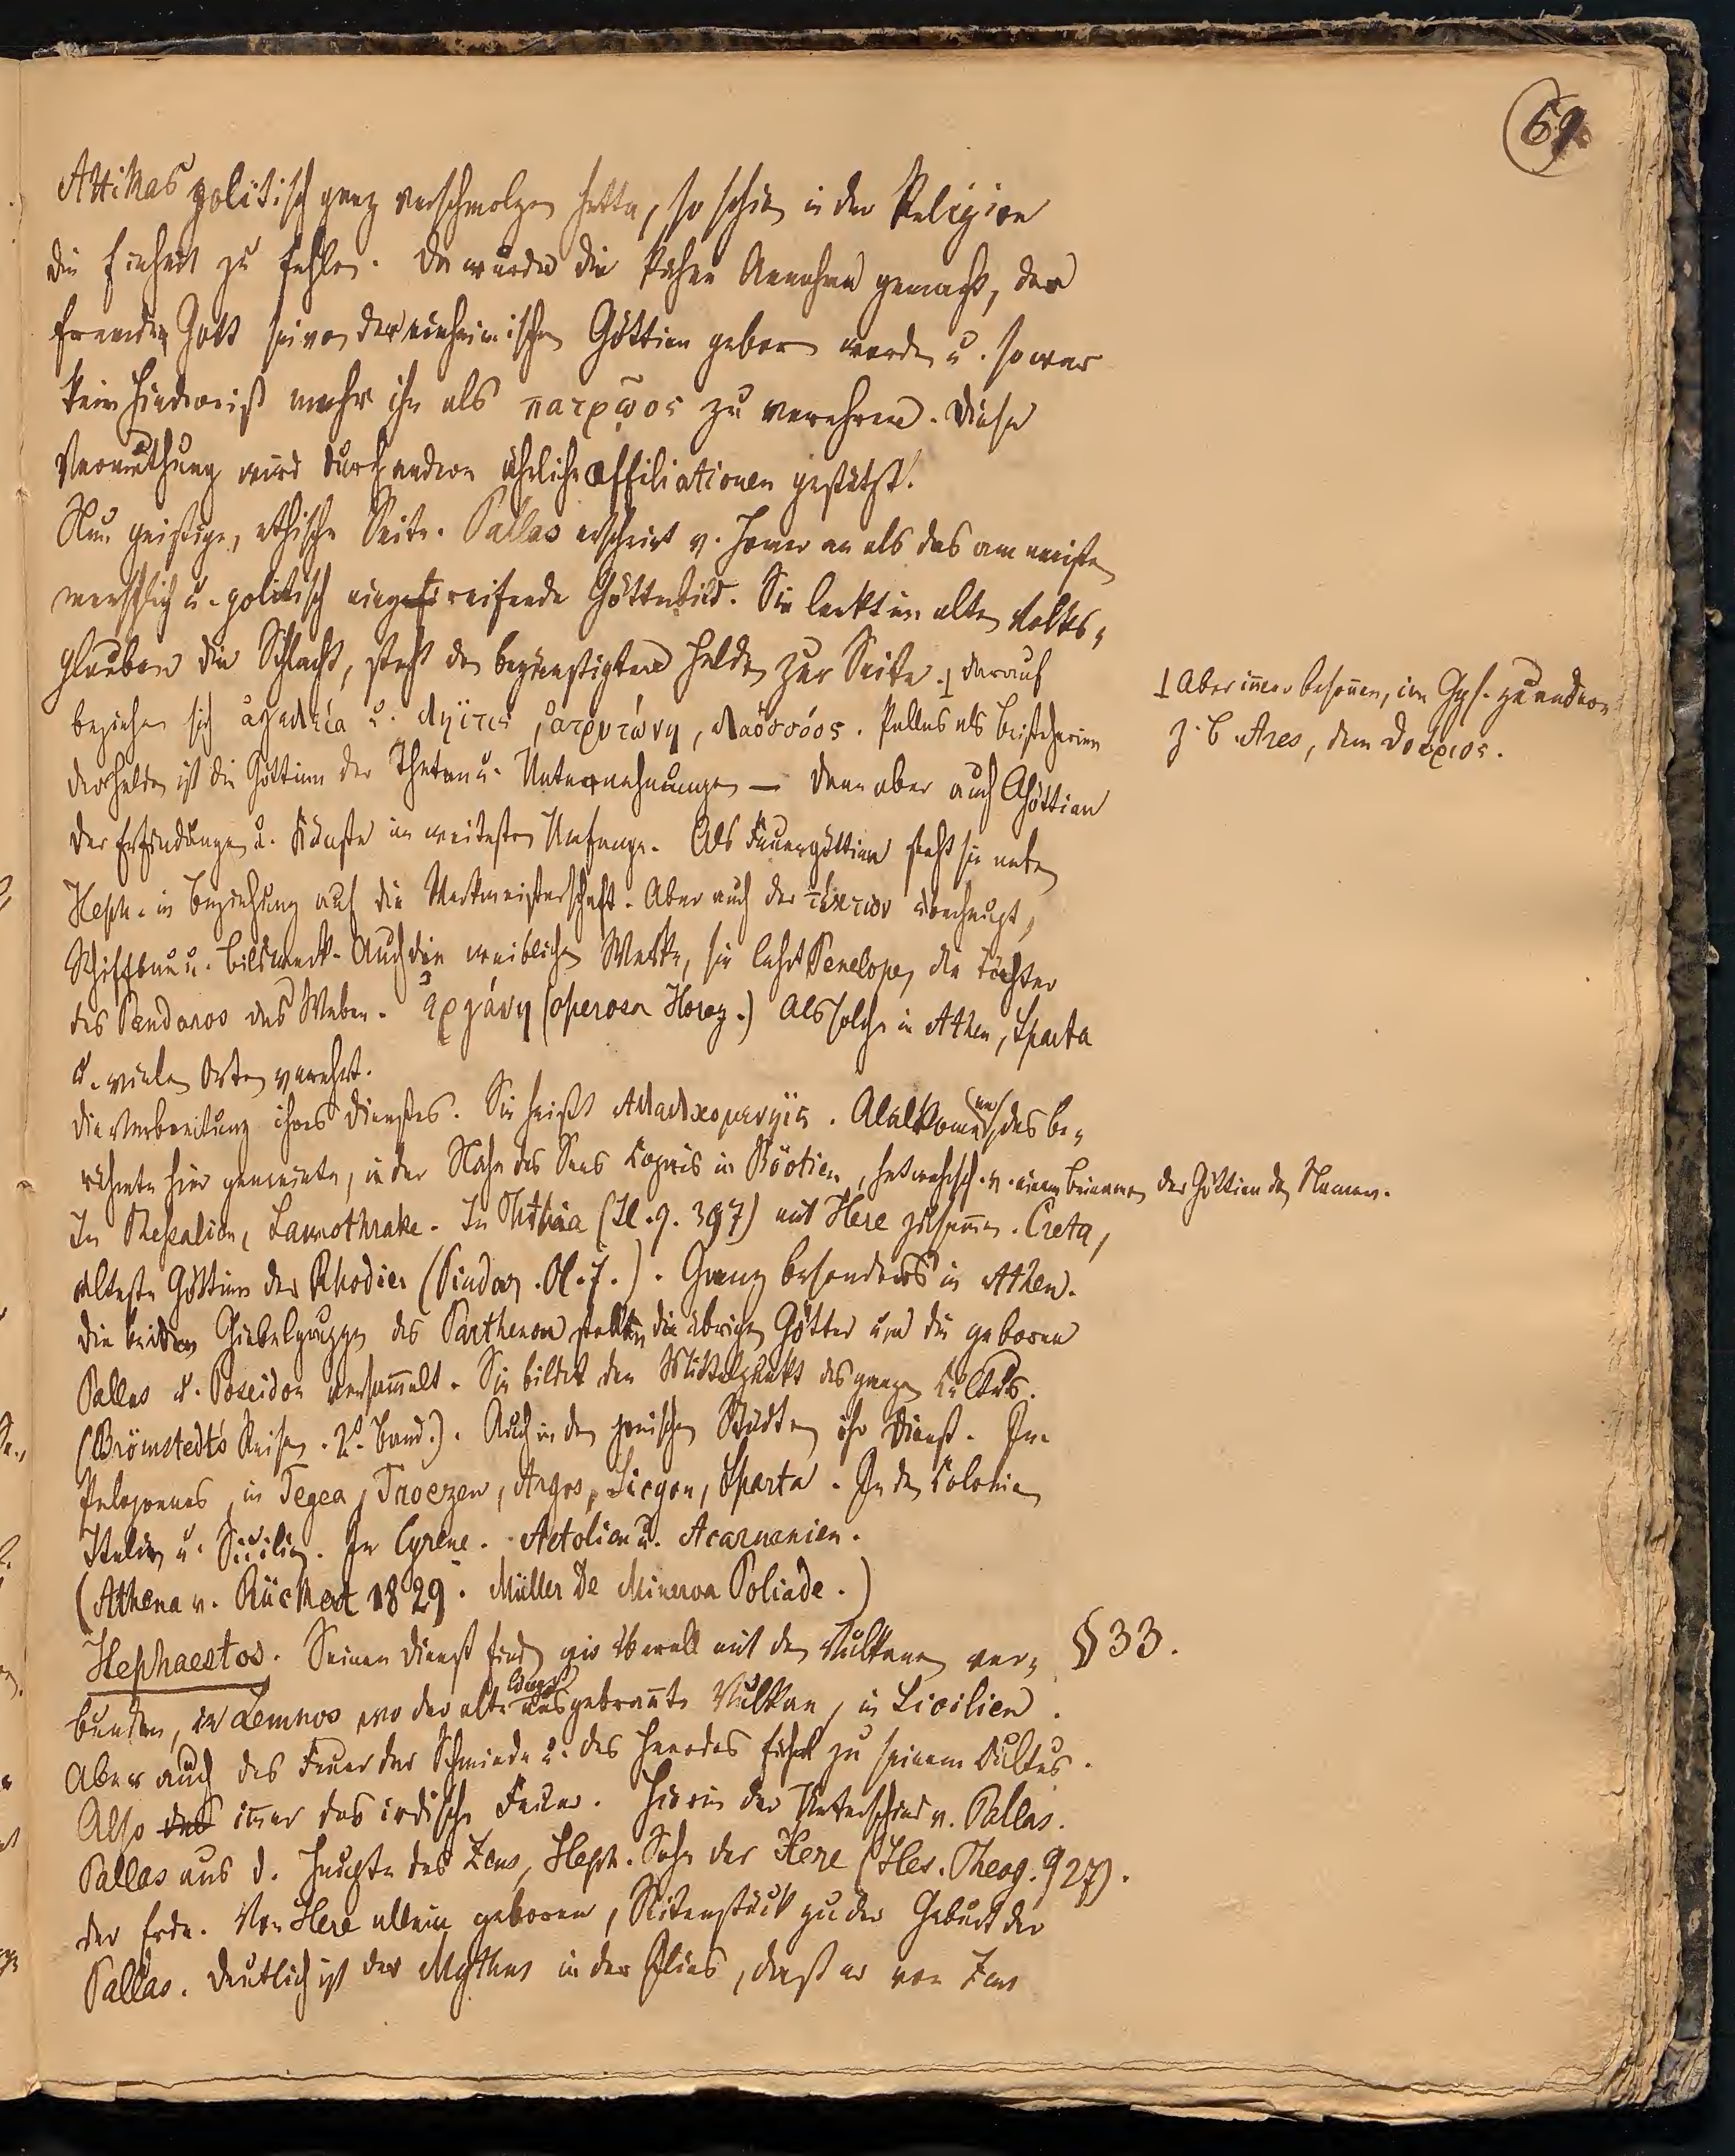 69
Attikas politisch ganz verschmolzen hatte, so schien in der Religion
die Einheit zu fehlen. Da wurde die Annahme gemacht, der
fremde Gott sei von der einheimischen Göttinn geboren worden u. so war
kein Hinderniß mehr ihn als πατρῷος zu verehren. Diese
Vermuthung wird durch andere ähnliche Affiliationen gestützt.
Nun geistige, ethische Seite. Pallas erscheint v. Homer an als das am meisten
menschlich u. politisch eingreifende Götterbild. Sie lenkt im alten Volks-
glauben die Schlacht, steht den begünstigten Helden zur Seite. ⊥ Darauf
⊥ Aber immer besonnen, im Ggs. zu andern
z. B. Ares, dem θοῦριος.
beziehen sich ἀγελεία u. ληῖτις, ἀτρυτώνη, λαοσσόος. Pallas als Beisteherinn
der Helden ist die Göttinn der Thaten u. Unternehmungen – dann aber auch Göttinn
der Erfindungen u. Künste im weitesten Umfange. Als Feuergöttinn steht sie neben
Heph. in Beziehung auf die Werkmeisterschaft. Aber auch der τέκτων überhaupt,
Schiffbau u. Bildwerk. Auch die weiblichen Werke, sie lehrt Penelope, die Töchter
des Pandaros das Weben. Ἐργάνη (operosa Horaz.) Als solche in Athen, Sparta
u. vielen Orten verehrt.
Die Verbreitung ihres Dienstes. Sie heißt Ἀλαλκομενηΐς. Alalkomenä, das be-
rühmte hier gemeinte, in der Nähe des Sees Copais in Böotien, hat wahrsch. v. einem Beinamen der Göttinn den Namen.
In Thessalien, Samothrake. In Phthia (Il. 9. 397) mit Here zusammen. Creta,
älteste Göttinn der Rhodier (Pindar. Ol. 7.). Ganz besonders in Athen.
Die beiden Giebelgruppen des Parthenon stellten die übrigen Götter um die geborene
Pallas u. Poseidon versammelt. Sie bildet den Mittelpunkt des ganzen Cultus.
(Brömstedts Reisen. 2r. Band.). Auch in den jonischen Städten ihr Dienst. Im
Peloponnes, in Tegea, Troezen, Argos, Sicyon, Sparta. In den Colonien
Italien u. Sicilien. In Cyrene. Aetolien u. Acarnanien.
(Athena v. Rückert 1829. Müller De Minerva Poliade.)
§ 33.
Hephaestos. Seinen Dienst finden wir überall mit den Vulkanen ver-
bunden, in Lemnos wo der alte längst ausgebrannte Vulkan, in Sicilien.
Aber auch das Feuer der Schmiede u. des Heerdes führt zu seinem Cultus.
Also das immer das irdische Feuer. Hierin der Unterschied v. Pallas.
Pallas aus d. Haupte des Zeus, Heph. Sohn der Here (Hes. Theog. 927).
der Erde. Von Here allein geboren, Seitenstück zu der Geburt der
Pallas. Deutlich ist der Mythus in der Ilias, daß er von Zeus